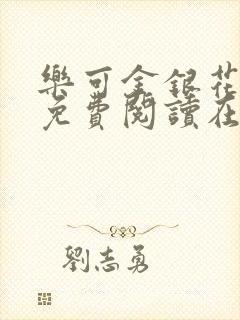 樂可金銀花
免費閱讀在
劉志勇